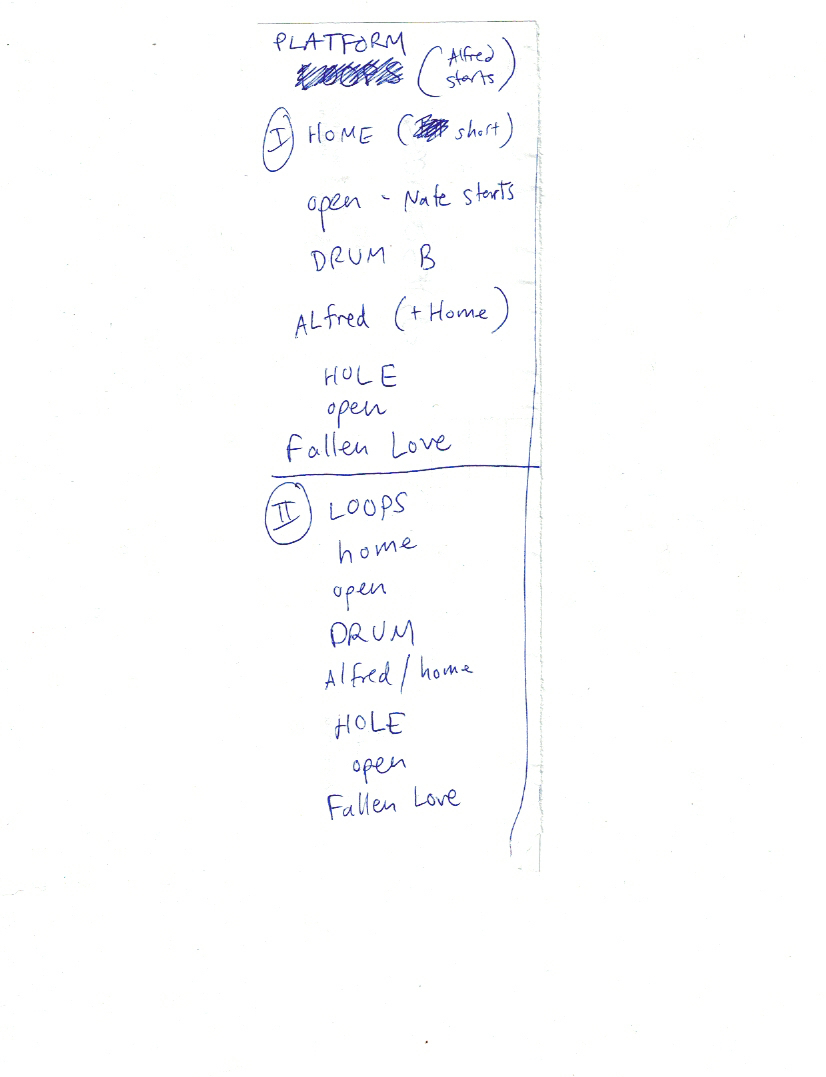 PLATFORM
(Alfred
starts)
I HOME (short)
open - Nate starts
DRUM B
ALfred (+ Home)
HOLE
open
Fallen Love
II LOOPS
home
open
DRUM
Alfred / home
HOLE
open
Fallen Love